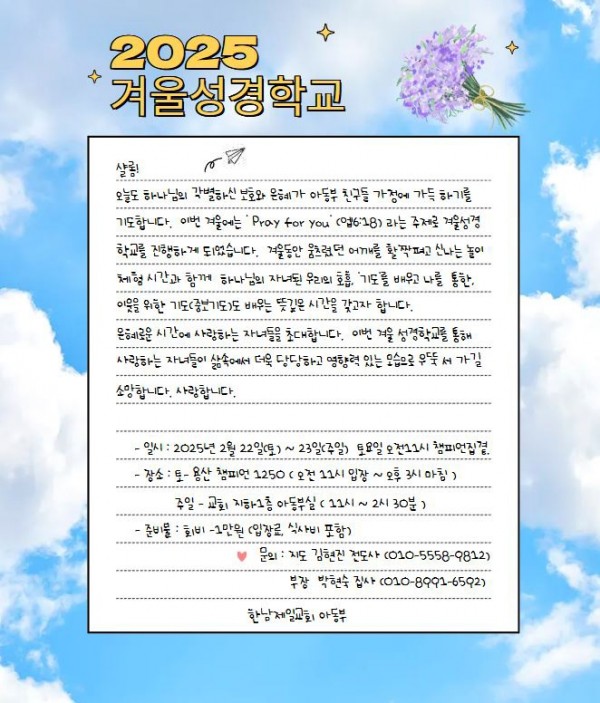 2025
겨울성경학교
샬롬!
오늘도 하나님의 각별하신 보호와 은혜가 아동부 친구들 가정에 가득 하기를
기도합니다. 이번 겨울에는 'Pray for you' (엡6:18) 라는 주제로 겨울성경
학교를 진행하게 되었습니다. 겨울동안 움츠렸던 어깨를 활짝펴고 신나는 놀이
체험 시간과 함께 하나님의 자녀된 우리의 호흡, '기도'를 배우고 나를 통한,
이웃을 위한 기도(중보기도)도 배우는 뜻깊은 시간을 갖고자 합니다.
은혜로운 시간에 사랑하는 자녀들을 초대합니다. 이번 겨울 성경학교를 통해
사랑하는 자녀들이 삶속에서 더욱 당당하고 영향력 있는 모습으로 우뚝 서 가길
소망합니다. 사랑합니다.
- 일시 : 2025년 2월 22일(토) ~ 23일(주일) 토요일 오전11시 챔피언집결
- 장소 : 토- 용산 챔피언 1250 ( 오전 11시 입장 ~ 오후 3시 마침 )
주일 - 교회 지하1층 아동부실 ( 11시 ~ 2시 30분 )
- 준비물 : 회비 -1만원 (입장료, 식사비 포함)
문의 : 지도 김현진 전도사 (010-5558-9812)
부장 박현숙 집사 (010-8991-6592)
한남제일교회 아동부